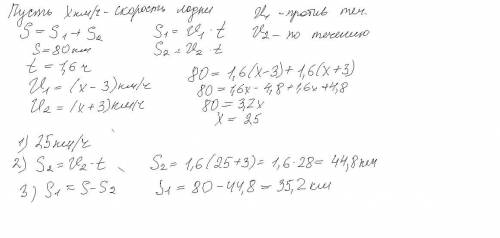 Пусть x км/ч - скорость лодки
V₁ - против теч.
S = S₁ + S₂
S₁ = V₁ · t
V₂ - по течению
S = 80 км
S₂ = V₂ · t
t = 1,6 ч
80 = 1,6(x-3) + 1,6(x+3)
V₁ = (x-3) км/ч
80 = 1,6x - 4,8 + 1,6x + 4,8
V₂ = (x+3) км/ч
80 = 3,2x
x = 25
1) 25 км/ч
2) S₂ = V₂ · t
S₂ = 1,6(25+3) = 1,6 · 28 = 44,8 км
3) S₁ = S - S₂
S₁ = 80 - 44,8 = 35,2 км